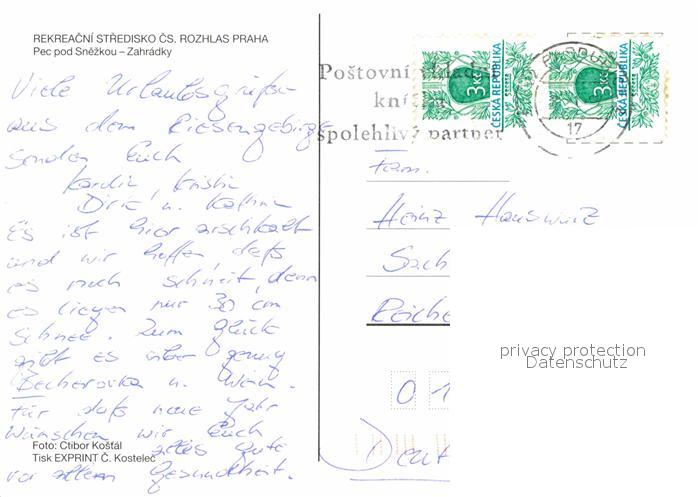 REKREAČNÍ STŘEDISKO ČS. ROZHLAS PRAHA
Pec pod Sněžkou – Zahrádky
Viele Urlaubsgrüße
aus dem Riesengebirge
senden Euch
Kristin
Dirk u. Kathrin
Es ist hier arschkalt
und wir hoffen, daß
es noch schneit, denn
es liegen nur 30 cm
Schnee. Zum Glück
gibt es aber genug
Becherovka u. Wein.
Für das neue Jahr
wünschen wir Euch
alles Gute
vor allem Gesundheit.
Foto: Ctibor Košťál
Tisk EXPRINT Č. Kosteleč
Poštovní
knížka
spolehlivý partner
3 Kčs
ČESKÁ REPUBLIKA
3 Kčs
ČESKÁ REPUBLIKA
17
Fam.
Heinz
Sach
Reiche
0 1
Deut
privacy protection
Datenschutz